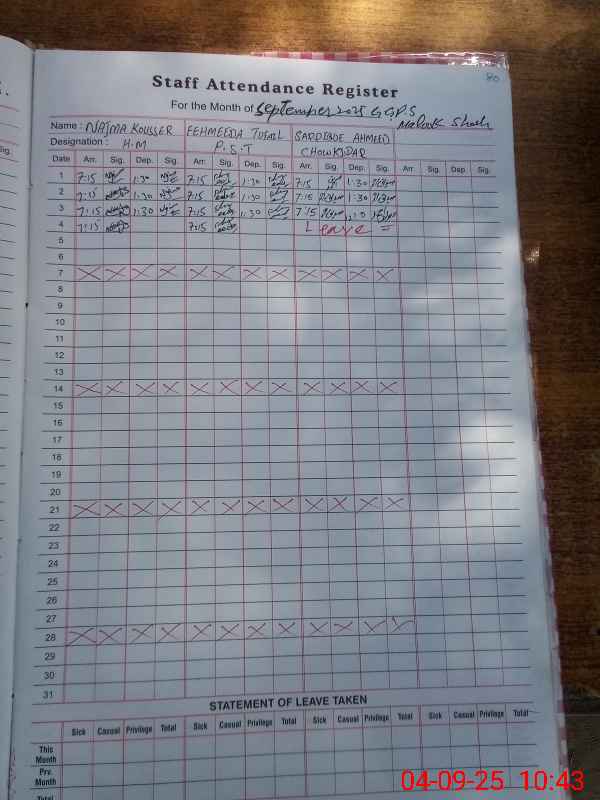 80
Staff Attendance Register
For the Month of September 2025 G G P S
Name : NAJMA KOUSSER FEHMEEDA TUFAIL SARDEDDE AHMEED
Designation : H.M P.S.T CHOWKIDAR
Date Arr. Sig. Dep. Sig. Arr. Sig. Dep. Sig. Arr. Sig. Dep. Sig. Arr. Sig. Dep. Sig.
1 7:15 1:30 7:15 1:30 7:15 1:30
2 7:15 1:30 7:15 1:30 7:15 1:30
3 7:15 1:30 7:15 1:30 7:15
4 7:15 7:15 Leave
5
6
7
8
9
10
11
12
13
14
15
16
17
18
19
20
21
22
23
24
25
26
27
28
29
30
31
STATEMENT OF LEAVE TAKEN
Sick Casual Privilege Total Sick Casual Privilege Total Sick Casual Privilege Total Sick Casual Privilege Total
This Month
Prv. Month
Total
04-09-25 10:43